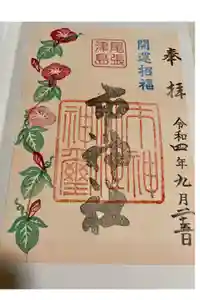 奉拝
令和四年九月二十五日
開運招福
尾張
津島
市神社